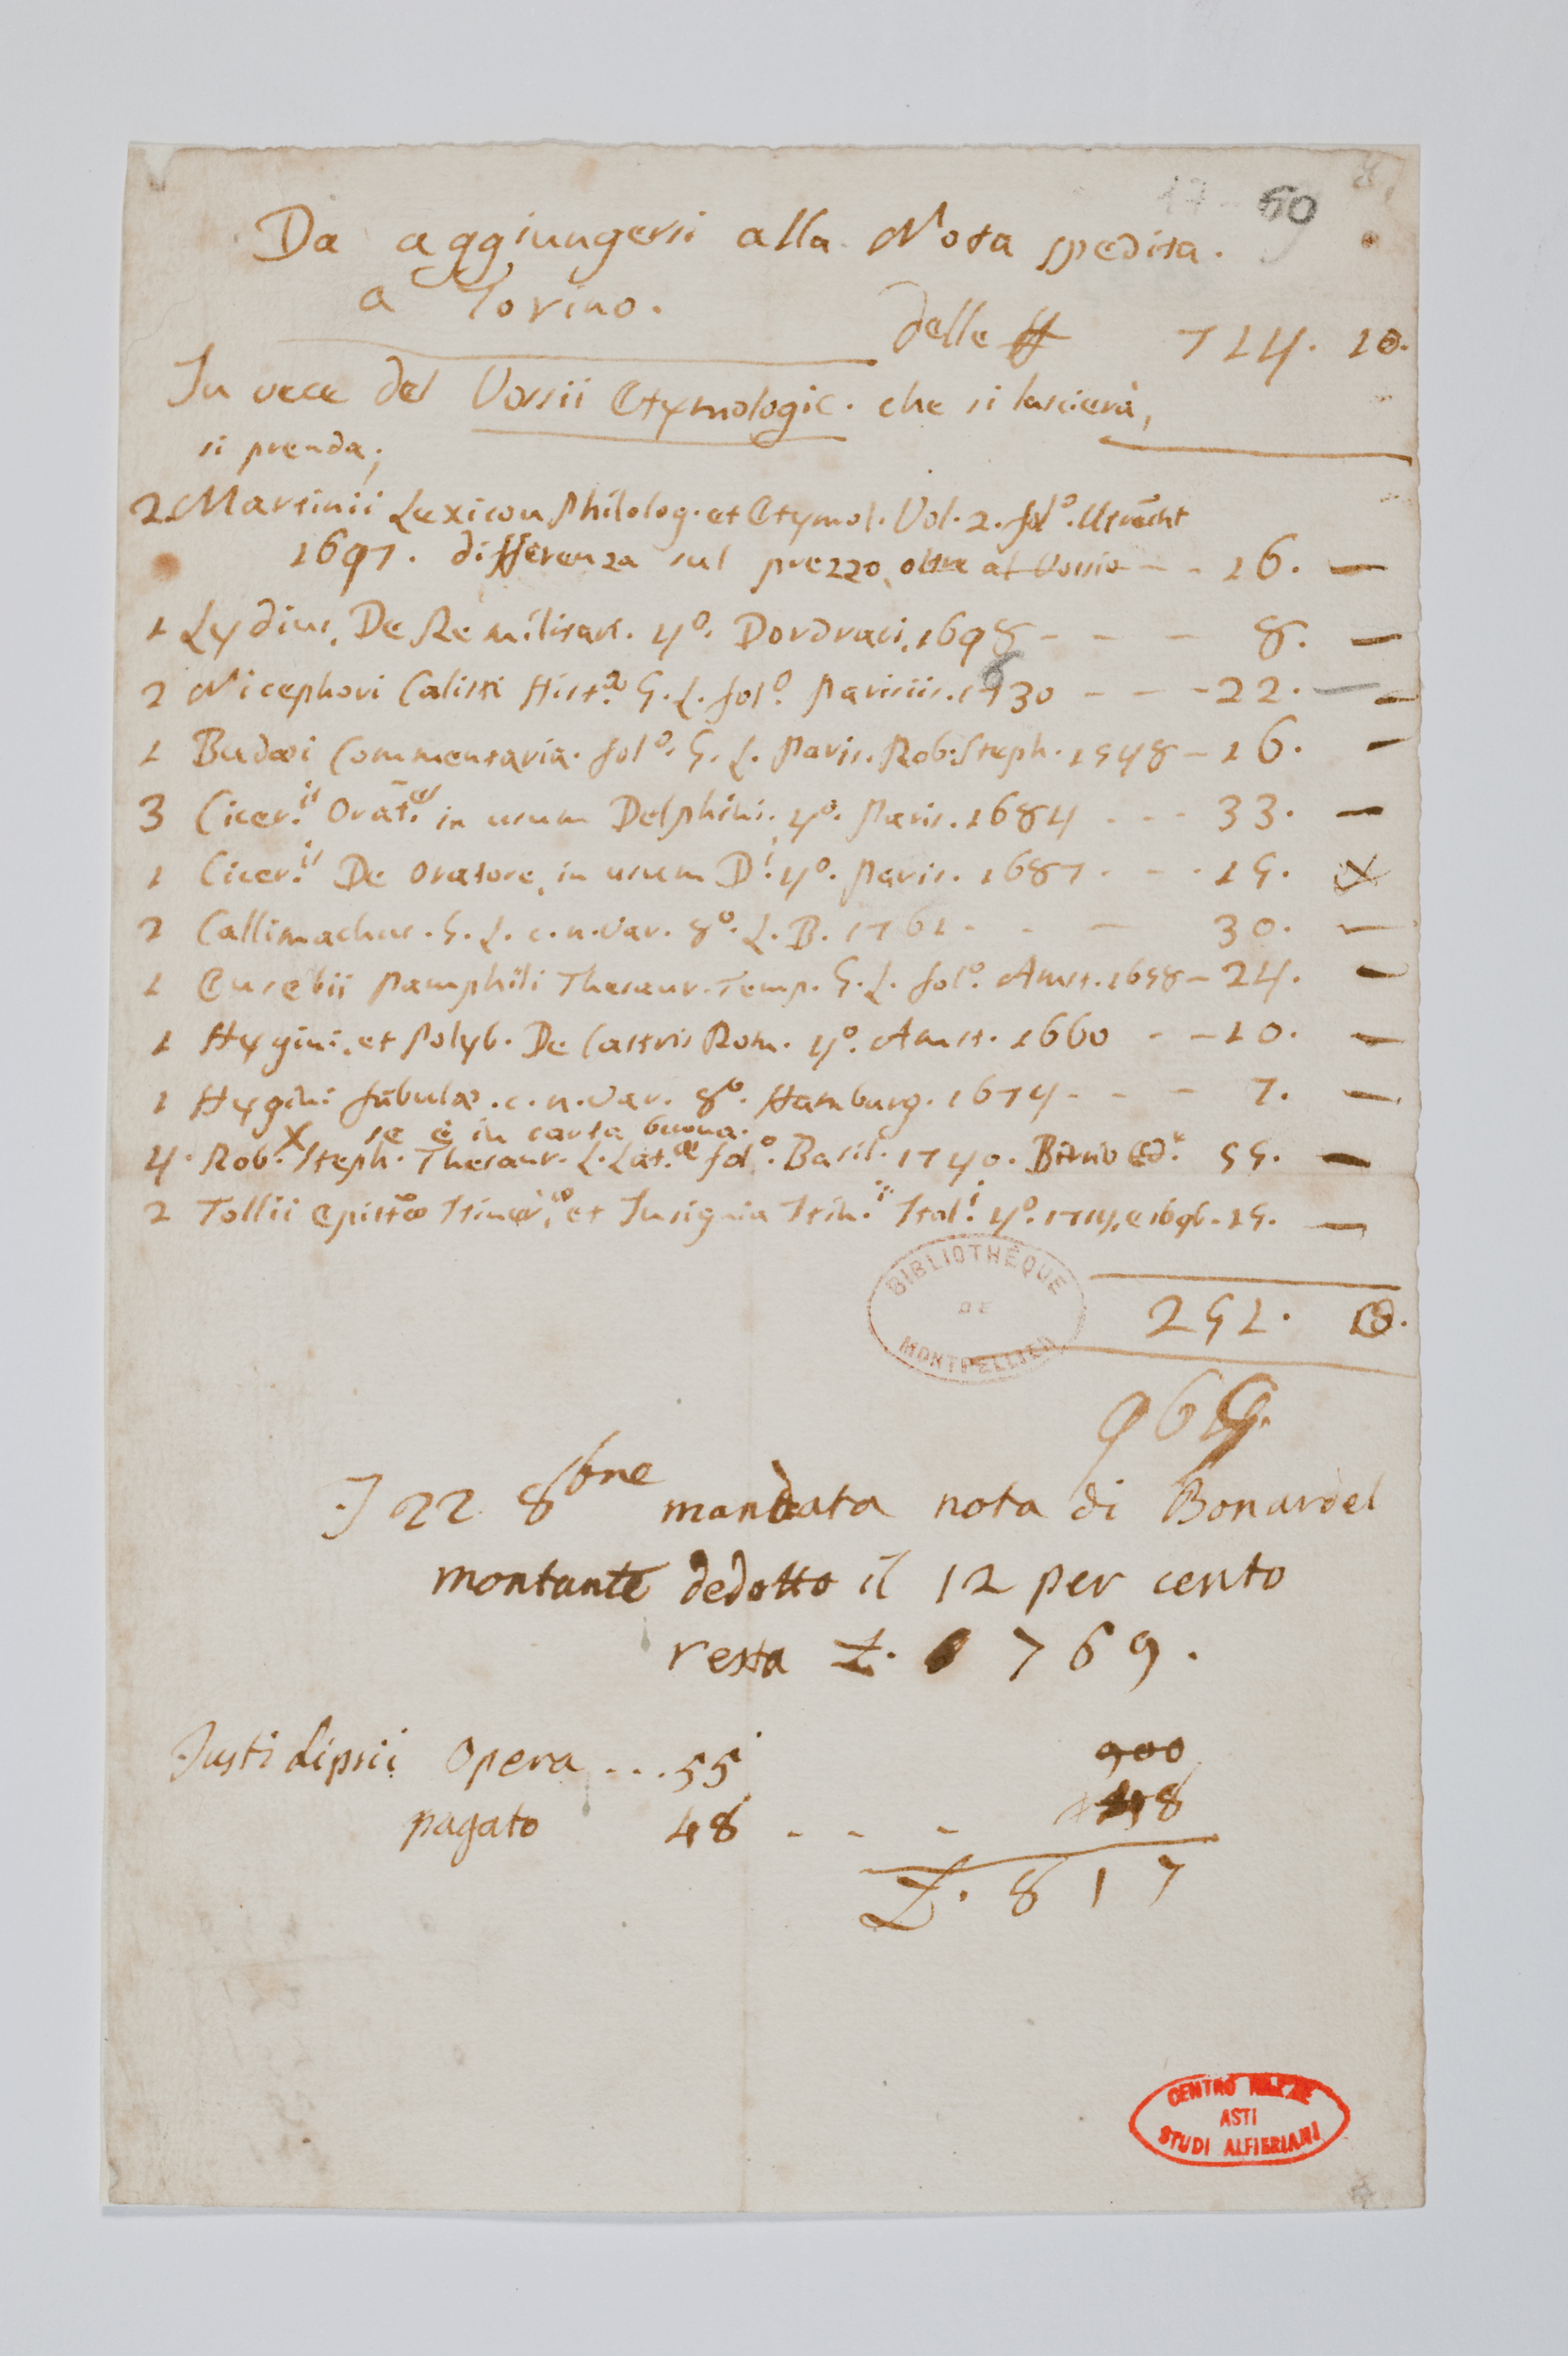 60
Da aggiungersi alla Nota spedita.
a Torino.
delle ₶ 714. 10.
In vece del Vossii Etymologic. che si lascierà,
si prenda;
2 Martinii Lexicon Philolog. et Etymol. Vol. 2. fol.º Utrecht
1697. differenza sul prezzo, oltre al Vossio - - 16. —
1 Lydius, De Re militari. 4º. Dordraci, 1698 - - - 8. —
2 Nicephori Calisti Hist.ª G. L. fol.º Parisiis. 1630 - - - 22. —
1 Budæi Commentaria. fol.º G. L. Paris. Rob. Steph. 1548 - 16. —
3 Cicer.is Orat.es in usum Delphini. 4º. Paris. 1684 - - - 33. —
1 Cicer.is De Oratore, in usum D.i 4º. Paris. 1687 - - - 15. X
2 Callimachus. G. L. c. n. var. 8º. L. B. 1761 - - - 30. —
1 Eusebii Pamphili Thesaur. Temp. G. L. fol.º Amst. 1658 - 24. —
1 Hygini, et Polyb. De Castris Rom. 4º. Amst. 1660 - - 10. —
1 Hygini fabulæ. c. n. var. 8º. Hamburg. 1674 - - - 7. —
X se è in carta buona.
4 Rob. Steph. Thesaur. L. Lat.æ fol.º Basil. 1740. 55. —
2 Tollii Epistæ Itiner. et Insignia Itin.ii Ital.i 4º. 1714, e 1696 - 15. —
BIBLIOTHÈQUE
DE
MONTPELLIER
251. 10.
965.
I 22 8bre mandata nota di Bonardel
montante dedotto il 12 per cento
resta £. 769.
Justi Lipsii Opera ... 55 900
pagato 48 - - - 48
£. 817
CENTRO NAZ. DE
ASTI
STUDI ALFIERIANI